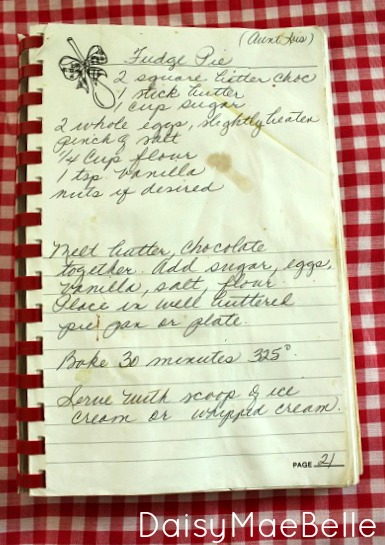 (Aunt Lois)
Fudge Pie
2 square bitter choc
1 stick butter
1 cup sugar
2 whole eggs, slightly beaten
pinch of salt
1/4 cup flour
1 tsp. vanilla
nuts if desired
Melt butter, chocolate
together. Add sugar, eggs,
vanilla, salt, flour.
Place in well buttered
pie pan or plate.
Bake 30 minutes 325°.
Serve with scoop of ice
cream or whipped cream.
PAGE 21
DaisyMaeBelle